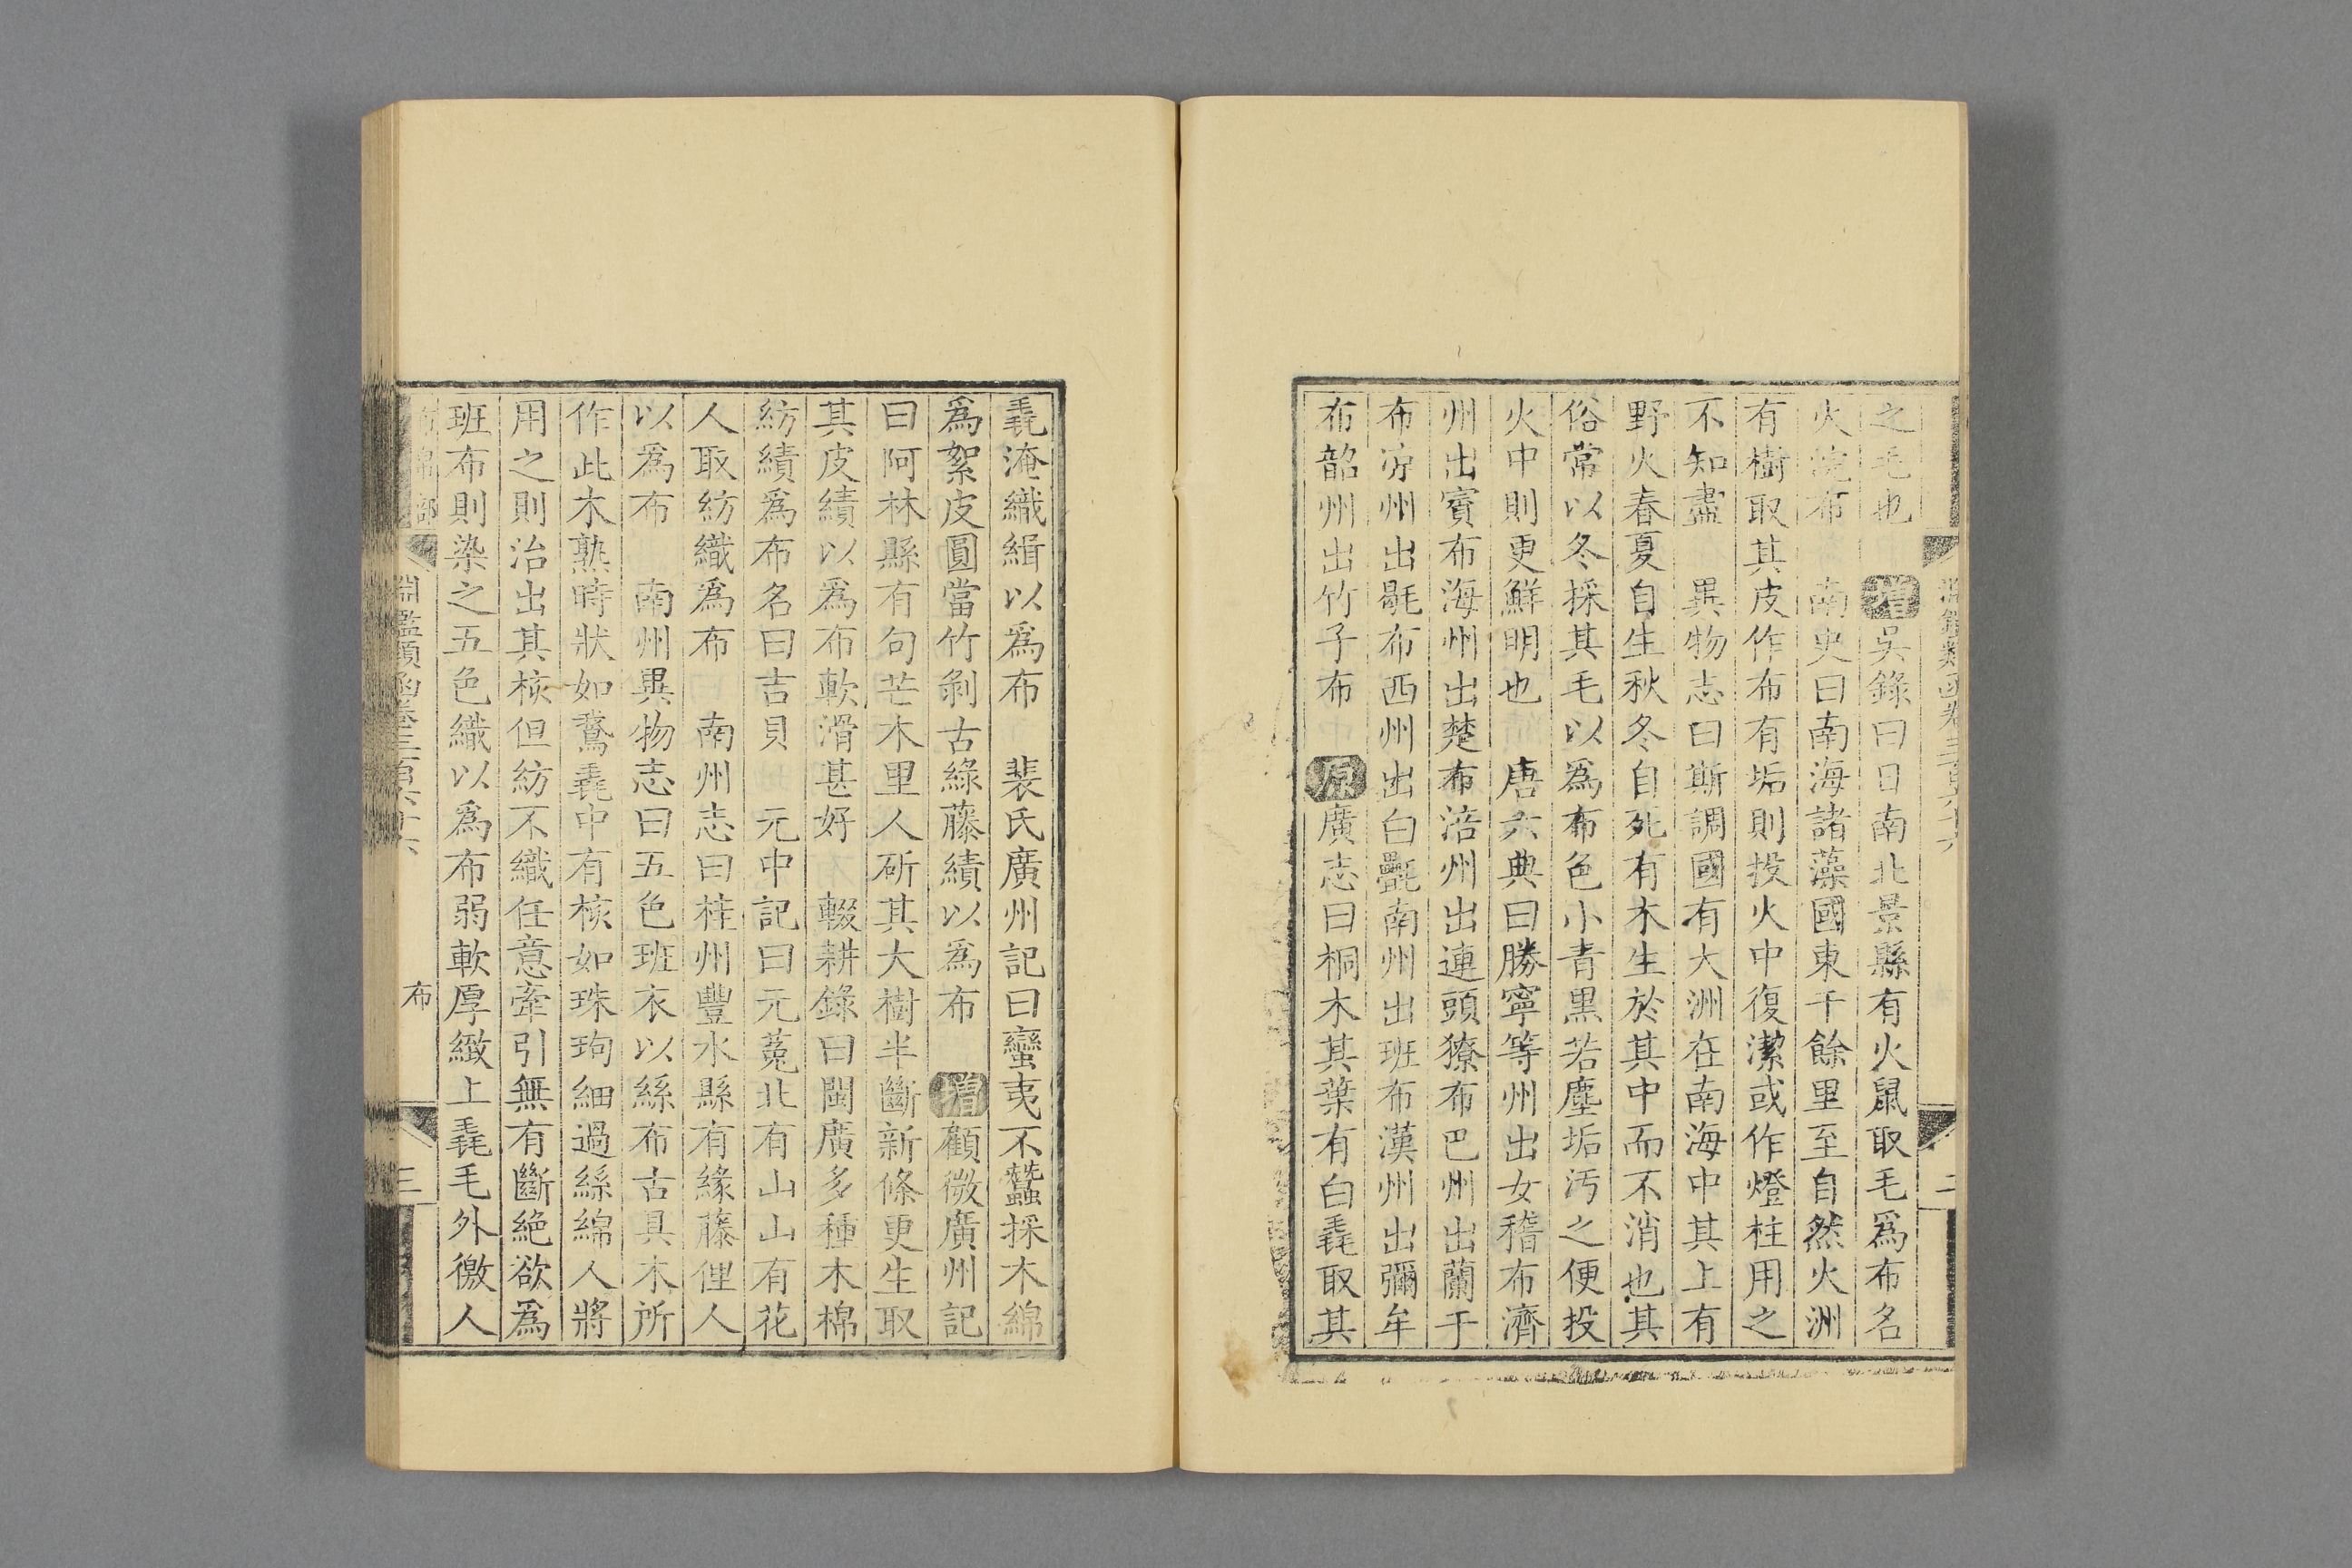 之毛也 增 吳錄曰日南北景縣有火鼠取毛爲布名
火浣布 南史曰南海諸薄國東千餘里至自然火洲
有樹取其皮作布有垢則投火中復潔或作燈柱用之
不知盡 異物志曰斯調國有大洲在南海中其上有
野火春夏自生秋冬自死有木生於其中而不消也其
俗常以冬採其毛以爲布色小青黑若塵垢汚之便投
火中則更鮮明也 唐六典曰勝寧等州出女稽布濟
州出賓布海州出楚布涪州出連頭獠布巴州出蘭于
布涼州出毼布西州出白㲲南州出班布漢州出彌牟
布韶州出竹子布 原 廣志曰桐木其葉有白毳取其
毳淹織緝以爲布 裴氏廣州記曰蠻夷不蠶採木綿
爲絮皮圓當竹剝古綠藤績以爲布 增 顧微廣州記
曰阿林縣有句芒木里人斫其大樹半斷新條更生取
其皮績以爲布軟滑甚好 輟耕錄曰閩廣多種木棉
紡績爲布名曰吉貝 元中記曰元菟北有山山有花
人取紡織爲布 南州志曰桂州豐水縣有緣藤俚人
以爲布 南州異物志曰五色班衣以絲布古具木所
作此木熟時狀如鵞毳中有核如珠珣細過絲綿人將
用之則治出其核但紡不織任意牽引無有斷絶欲爲
班布則染之五色織以爲布弱軟厚緻上毳毛外徼人
淵鑑類函卷三百六十六
布
三